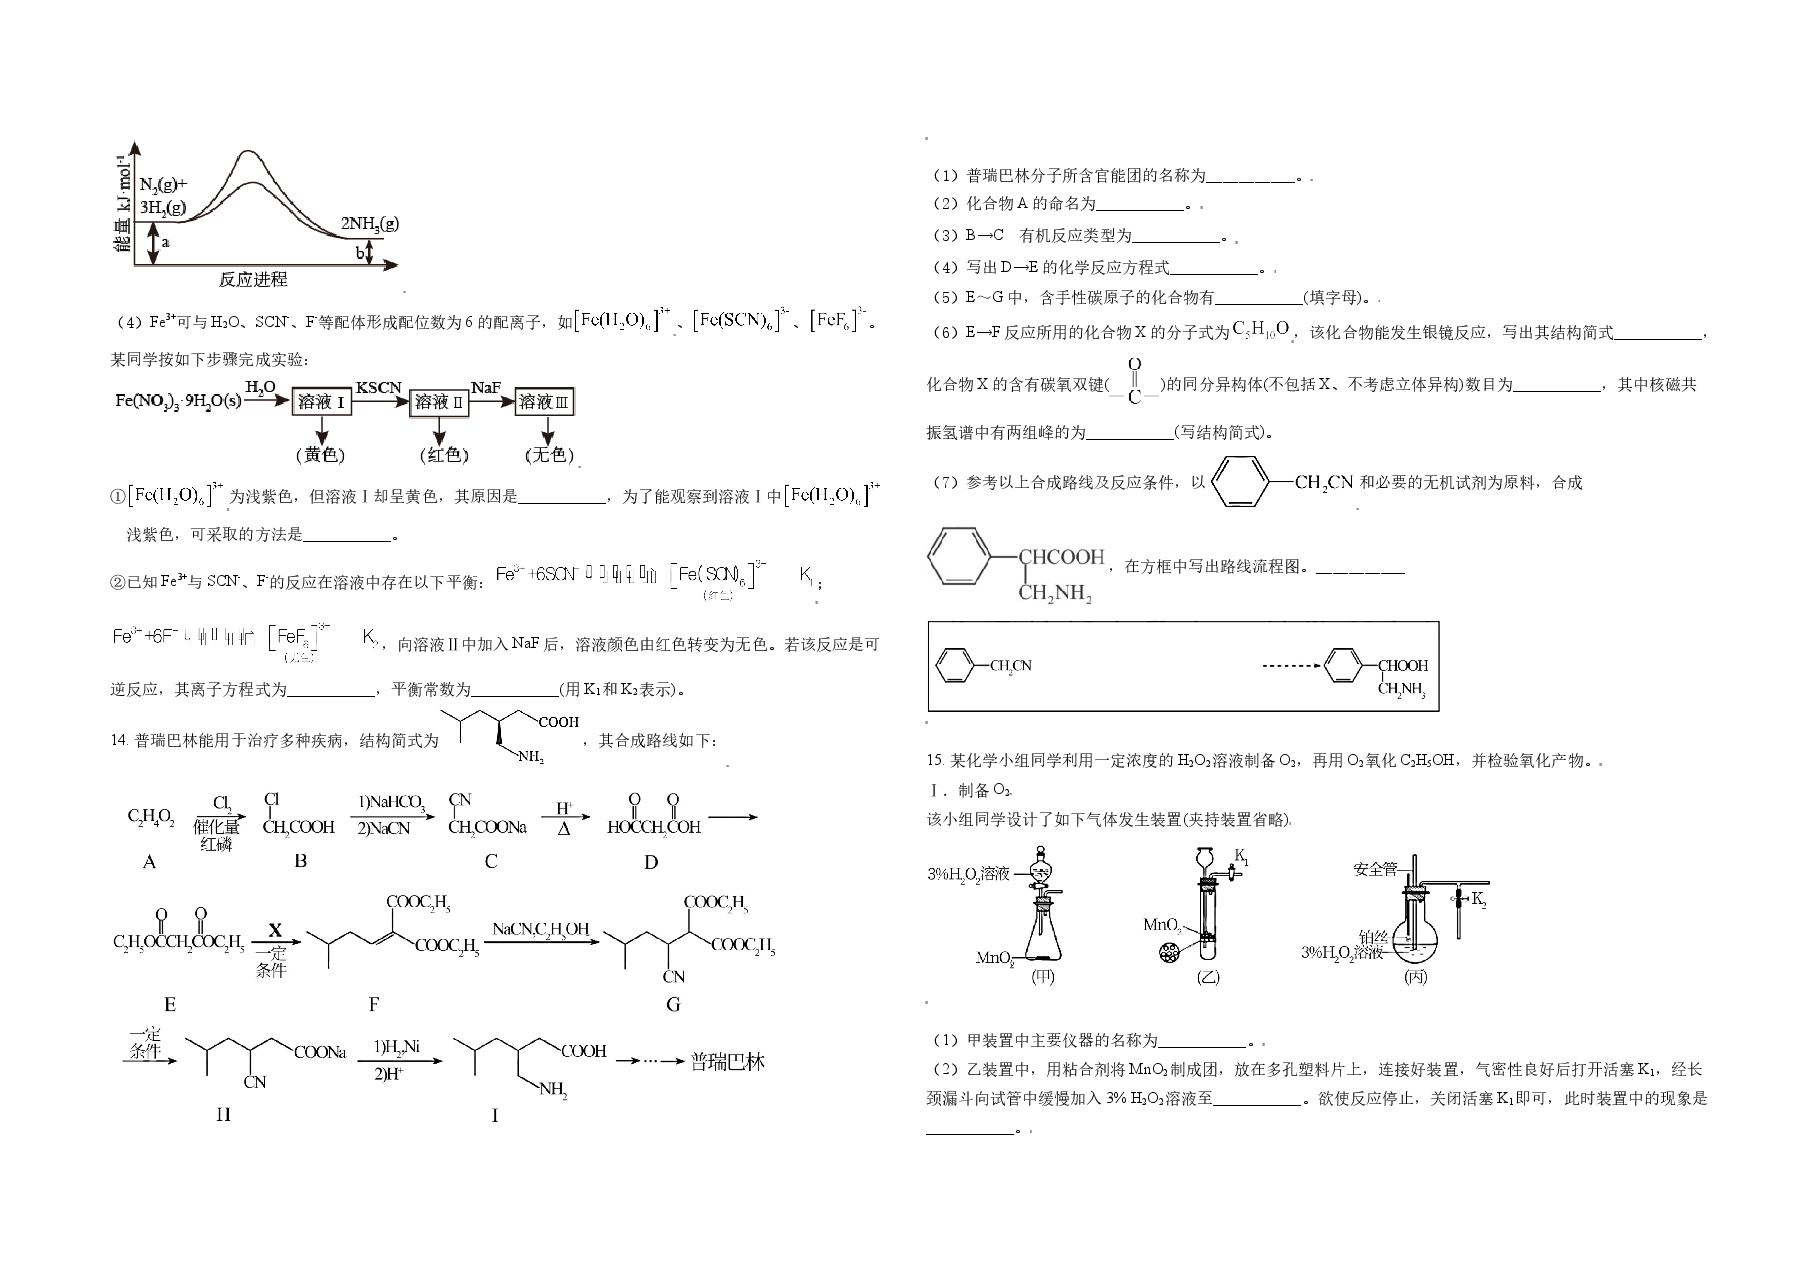 能量 kJ·mol⁻¹
N₂(g)+
3H₂(g)
2NH₃(g)
a
b
反应进程
（4）Fe³⁺可与H₂O、SCN⁻、F⁻等配体形成配位数为6的配离子，如[Fe(H₂O)₆]³⁺、[Fe(SCN)₆]³⁻、[FeF₆]³⁻。
某同学按如下步骤完成实验：
Fe(NO₃)₃·9H₂O(s) H₂O 溶液Ⅰ KSCN 溶液Ⅱ NaF 溶液Ⅲ
(黄色) (红色) (无色)
①[Fe(H₂O)₆]³⁺为浅紫色，但溶液Ⅰ却呈黄色，其原因是___________，为了能观察到溶液Ⅰ中[Fe(H₂O)₆]³⁺
浅紫色，可采取的方法是___________。
②已知Fe³⁺与SCN⁻、F⁻的反应在溶液中存在以下平衡：Fe³⁺+6SCN⁻ [Fe(SCN)₆]³⁻ (红色) K₁；
Fe³⁺+6F⁻ [FeF₆]³⁻ (无色) K₂，向溶液Ⅱ中加入NaF后，溶液颜色由红色转变为无色。若该反应是可
逆反应，其离子方程式为___________，平衡常数为___________(用K₁和K₂表示)。
14. 普瑞巴林能用于治疗多种疾病，结构简式为 COOH NH₂ ，其合成路线如下：
C₂H₄O₂ Cl₂ 催化量 红磷 Cl CH₂COOH 1)NaHCO₃ 2)NaCN CN CH₂COONa H⁺ Δ O O HOCCH₂COH
A B C D
O O C₂H₅OCCH₂COC₂H₅ X 一定 条件 COOC₂H₅ COOC₂H₅ NaCN,C₂H₅OH COOC₂H₅ COOC₂H₅ CN
E F G
一定 条件 COONa CN 1)H₂,Ni 2)H⁺ COOH NH₂ … 普瑞巴林
H I
（1）普瑞巴林分子所含官能团的名称为___________。
（2）化合物A的命名为___________。
（3）B→C 有机反应类型为___________。
（4）写出D→E的化学反应方程式___________。
（5）E～G中，含手性碳原子的化合物有___________(填字母)。
（6）E→F反应所用的化合物X的分子式为C₅H₁₀O，该化合物能发生银镜反应，写出其结构简式___________，
化合物X的含有碳氧双键( O —C— )的同分异构体(不包括X、不考虑立体异构)数目为___________，其中核磁共
振氢谱中有两组峰的为___________(写结构简式)。
（7）参考以上合成路线及反应条件，以 CH₂CN 和必要的无机试剂为原料，合成
CHCOOH CH₂NH₂ ，在方框中写出路线流程图。___________
CH₂CN CHOOH CH₂NH₃
15. 某化学小组同学利用一定浓度的H₂O₂溶液制备O₂，再用O₂氧化C₂H₅OH，并检验氧化产物。
Ⅰ．制备O₂
该小组同学设计了如下气体发生装置(夹持装置省略)
3%H₂O₂溶液 MnO₂ (甲)
K₁ MnO₂ (乙)
安全管 K₂ 铂丝 3%H₂O₂溶液 (丙)
（1）甲装置中主要仪器的名称为___________。
（2）乙装置中，用粘合剂将MnO₂制成团，放在多孔塑料片上，连接好装置，气密性良好后打开活塞K₁，经长
颈漏斗向试管中缓慢加入3% H₂O₂溶液至___________。欲使反应停止，关闭活塞K₁即可，此时装置中的现象是
___________。